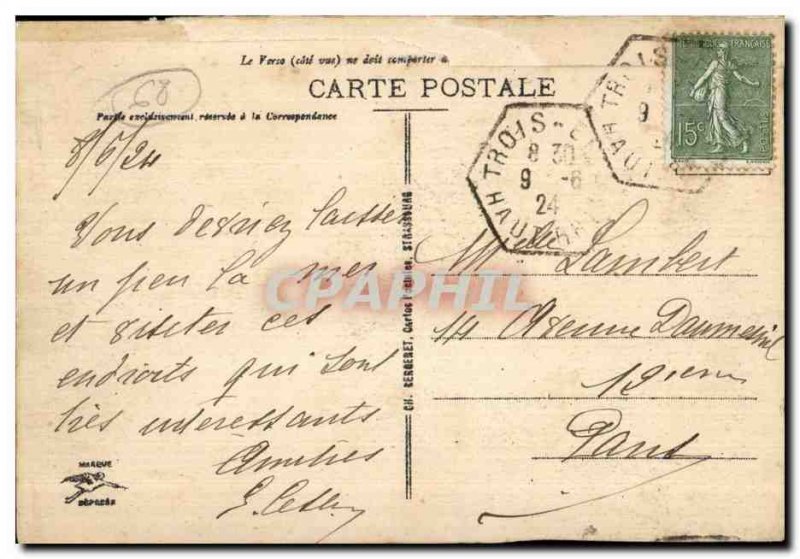 Le Verso (côté vue) ne doit comporter a
CARTE POSTALE
Partie exclusivement réservée à la Correspondance
68
8/6/24
Vous devriez laisser
un peu la mer
et visiter ces
endroits qui sont
très intéressants
Amitiés
MARQUE
DÉPOSÉE
CH. BERGERET, Cartes Postales, STRASBOURG
TROIS-E
8 30
9 -6
24
HAUT-RH
TROIS
9
HAUT
RÉPUBLIQUE FRANÇAISE
15c
POSTES
Mlle Lambert
14 Avenue Daumesnil
12ième
Paris
CPAPHIL